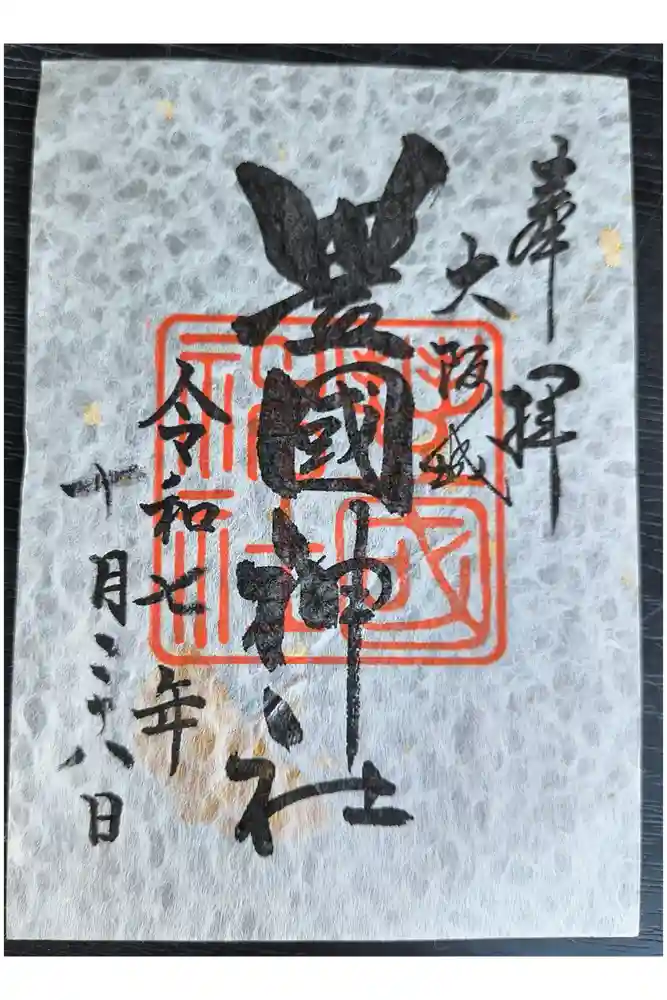 奉拝
大阪城
豊國神社
令和七年
十月二十八日